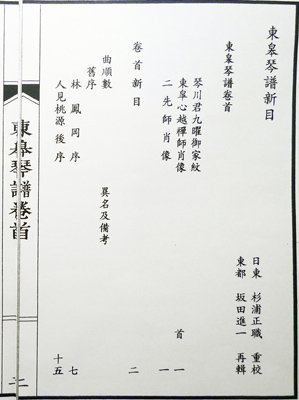 東皋琴譜新目
日東 杉浦正職 重校
東都 坂田進一 再輯
東皋琴譜卷首
琴川君九曜御家紋 首
東皋心越禪師肖像 一
二先師肖像 一
卷首新目 二
曲順數 異名及備考
舊序
林鳳岡序 七
人見桃源後序 十五
東皋琴譜卷首
二